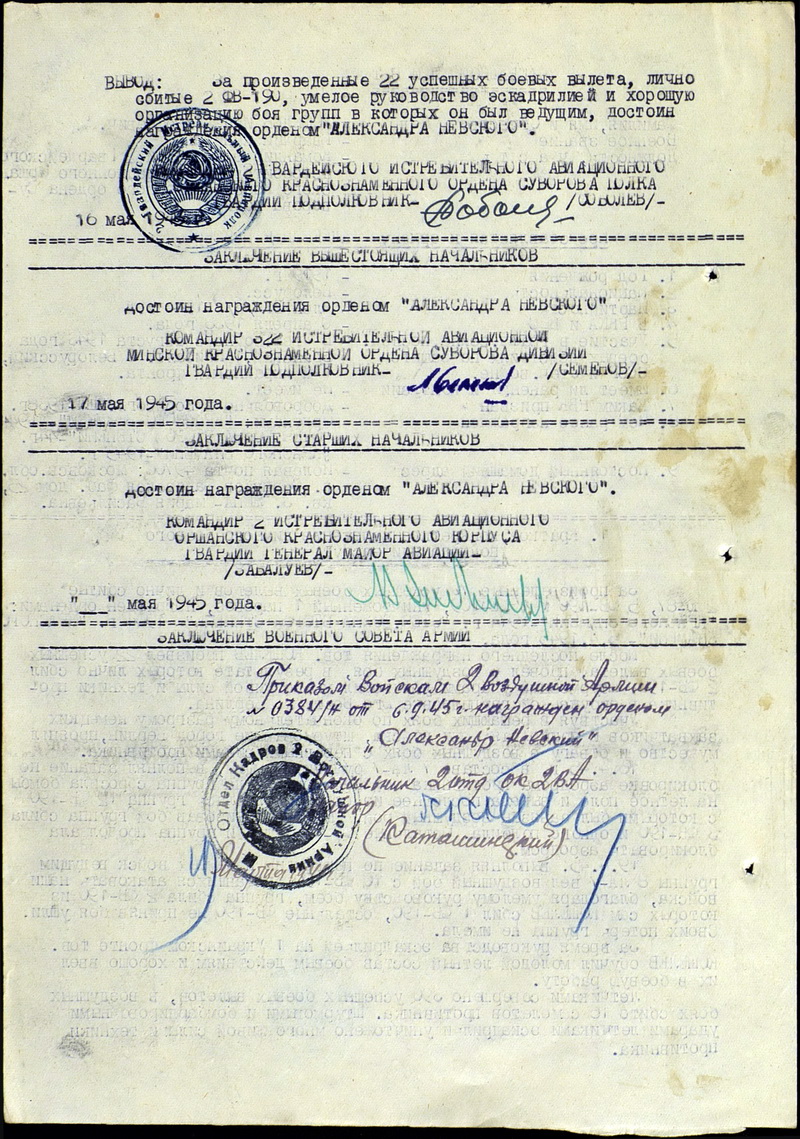 ВЫВОД: За произведенные 22 успешных боевых вылета, лично
сбитые 2 ФВ-190, умелое руководство эскадрилией и хорошую
организацию боя групп в которых он был ведущим, достоин
награждения орденом "АЛЕКСАНДРА НЕВСКОГО".
ВАРДЕЙСКОГО ИСТРЕБИТЕЛЬНОГО АВИАЦИОННОГО
КРАСНОЗНАМЕННОГО ОРДЕНА СУВОРОВА ПОЛКА
ВАРДИИ ПОДПОЛКОВНИК- /СОБОЛЕВ/-
16 мая
ЗАКЛЮЧЕНИЕ ВЫШЕСТОЯЩИХ НАЧАЛЬНИКОВ
достоин награждения орденом "АЛЕКСАНДРА НЕВСКОГО"
КОМАНДИР 322 ИСТРЕБИТЕЛЬНОЙ АВИАЦИОННОЙ
МИНСКОЙ КРАСНОЗНАМЕННОЙ ОРДЕНА СУВОРОВА ДИВИЗИИ
ГВАРДИИ ПОДПОЛКОВНИК- /СЕМЕНОВ/-
17 мая 1945 года.
ЗАКЛЮЧЕНИЕ СТАРШИХ НАЧАЛЬНИКОВ
достоин награждения орденом "АЛЕКСАНДРА НЕВСКОГО".
КОМАНДИР 2 ИСТРЕБИТЕЛЬНОГО АВИАЦИОННОГО
ОРШАНСКОГО КРАСНОЗНАМЕННОГО КОРПУСА
ГВАРДИИ ГЕНЕРАЛ МАЙОР АВИАЦИИ-
/ЗАБАЛУЕВ/-
"___" мая 1945 года.
ЗАКЛЮЧЕНИЕ ВОЕННОГО СОВЕТА АРМИИ
Приказом Войскам 2 Воздушной Армии
№ 0384/н от 6.9.45г. награжден орденом
"Александр Невский"
Отдел Кадров 2 Воздушной Армии
Начальник 2 отд. ок 2ВА
(Каташинский)